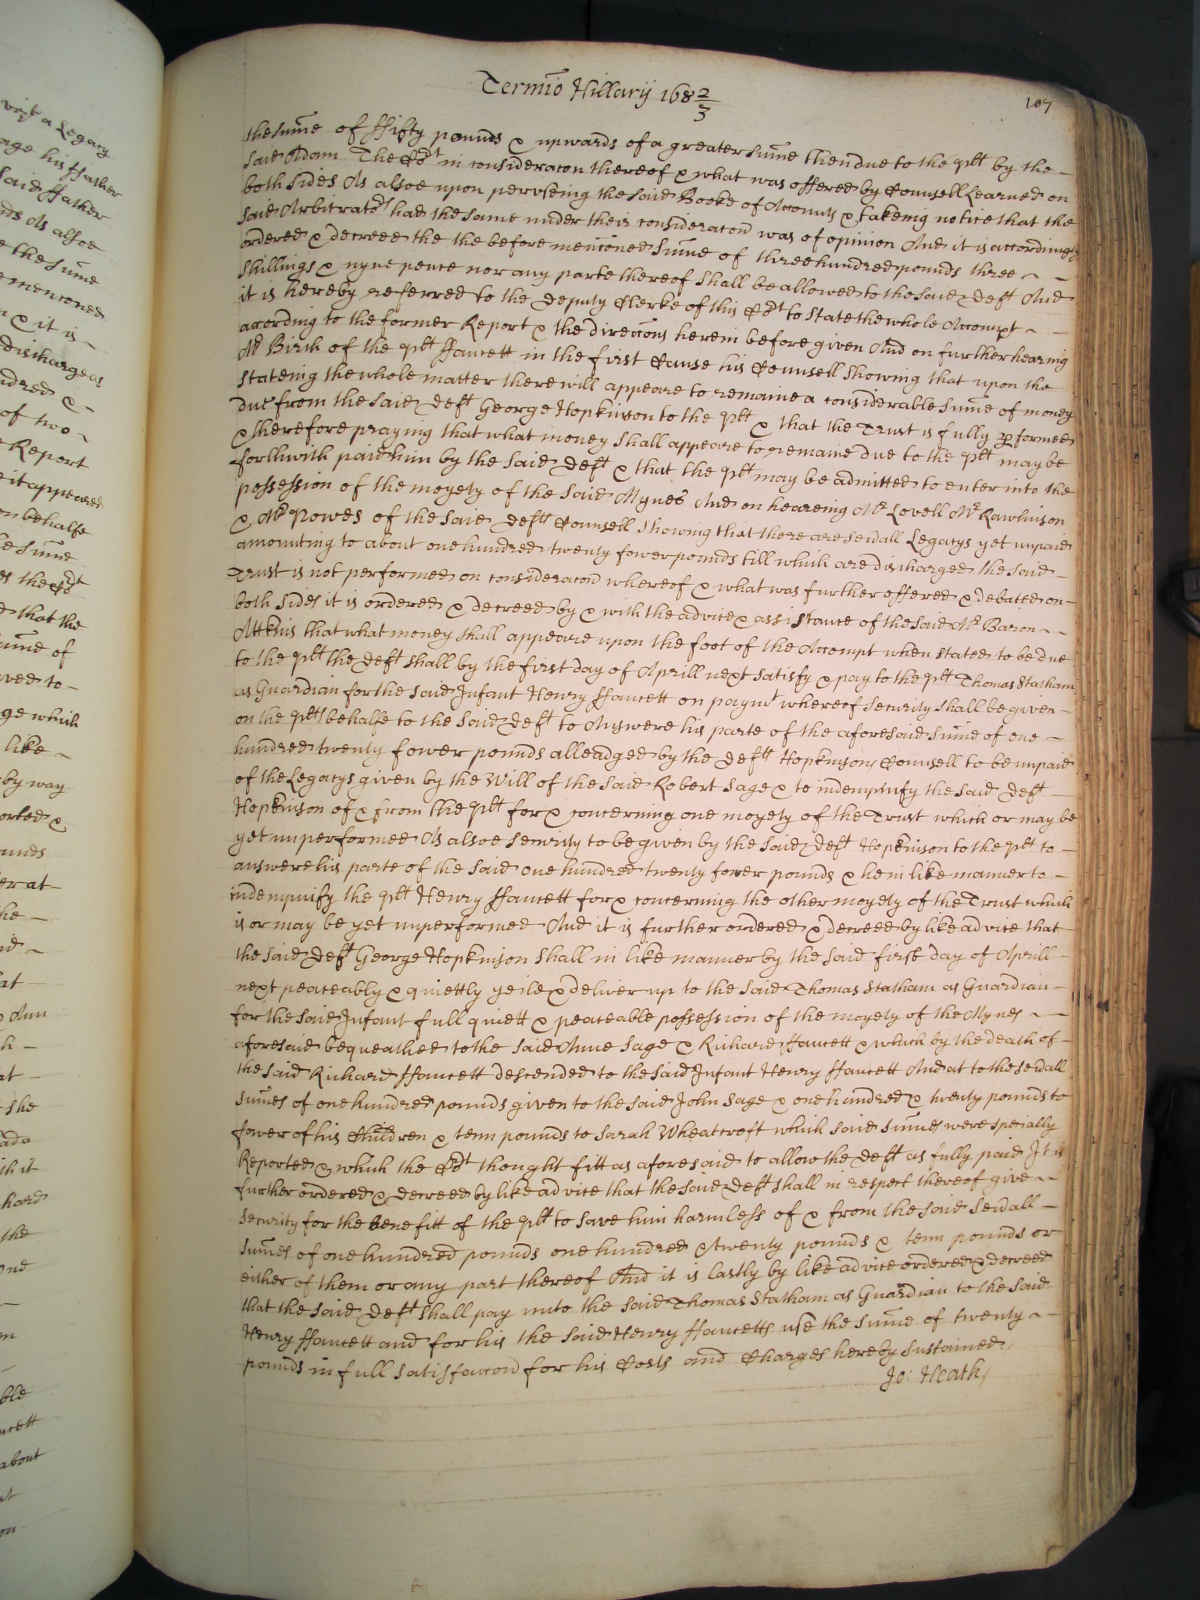 vizt a Legacy
age his ffather
said ffather
nds As alsoe
e the Sume
mencioned
n & it is
discharge as
ndred &
of two
Report
e it appeared
on behalfe
he Sume
es the Cort
d that the
sume of
wed to
ge which
like
by way
orted &
ounds
er at
he
id
at
Ann
h
at
she
ada
th it
hard
the
And
m
ble
ucett
about
at
on
Termio Hillarij 168 2/3
107
the Sume of ffifty pounds & upwards of a greater Sume then due to the plt by the
said Adam The Cort in consideracon thereof & what was offered by Counsell Learned on
both sides As alsoe upon peruseing the said Booke of Accounts & takeing notice that the
said Arbitrators had the same under their consideracon was of opinion And it is accordingly
ordered & decreed the the before mencioned Sume of three hundred pounds three
shillings & nyne pence nor any parte thereof shall be allowed to the said deft And
it is hereby referred to the deputy Clerke of this Cort to State the whole Accompt
according to the former Report & the direccons herein before given And on further hearing
Mr Birch of the plt ffaucett in the first Cause his Counsell Showing that upon the
stateing the whole matter there will appeare to remaine a considerable Sume of money
due from the said deft George Hopkinson to the plt & that the Trust is fully performed
& therefore praying that what money shall appeare to remaine due to the plt may be
forthwith paid him by the said deft & that the plt may be admitted to enter into the
possession of the moyety of the said Mynes And on heareing Mr Lovell Mr Rawlinson
& Mr Powes of the said defts Counsell Showing that there are sevrall Legacys yet unpaid
amounting to about one hundred twenty fower pounds till which are discharged the said
Trust is not performed on consideracon whereof & what was further offered & debated on
both sides it is ordered & decreed by & with the advice & assistance of the said Mr Baron
Attkins that what money shall appeare upon the foot of the Accompt when stated to be due
to the plt the deft shall by the first day of Aprill next satisfy & pay to the plt Thomas Statham
as Guardian for the said Infant Henry ffaucett on paymt whereof Security shall be given
on the plts behalfe to the said deft to Answere his parte of the aforesaid Sume of one
hundred twenty fower pounds alleadged by the deft Hopkinsons Counsell to be unpaid
of the Legacys given by the Will of the said Robert Sage & to indempnify the said deft
Hopkinson of & from the plt for & concerning one moyety of the Trust which or may be
yet unperformed As alsoe security to be given by the said deft Hopkinson to the plt to
answere his parte of the said one hundred twenty fower pounds & hem like manner to
indempnify the plt Henry ffaucett for & concerning the other moyety of the Trust which
is or may be yet unperformed And it is further ordered & decreed by like advice that
the said deft George Hopkinson shall in like manner by the said first day of Aprill
next peaceably & quiettly yeild & deliver up to the said Thomas Statham as Guardian
for the said Infant full quiett & peaceable possession of the moyety of the Mynes
aforesaid bequeathed to the said Anne Sage & Richard ffaucett & which by the death of
the said Richard ffaucett descended to the said Infant Henry ffaucett And at to the sevrall
sumes of one hundred pounds given to the said John Sage & one hundred & twenty pounds to
fower of his Children & tenn pounds to Sarah Wheatcroft which said sumes were specially
Reported & which the Cort thought fitt as aforesaid to allow the deft as fully paid It is
further ordered & decreed by like advice that the said deft shall in respect thereof give
security for the benefitt of the plt to save him harmless of & from the said sevrall
Sumes of one hundred pounds one hundred & twenty pounds & tenn pounds or
either of them or any part thereof And it is lastly by like advice ordered & decreed
that the said deft shall pay unto the said Thomas Statham as Guardian to the said
Henry ffaucett and for his the said Henry ffaucetts use the Sume of twenty
pounds in full satisfaccon for his Costs and Charges hereby sustained
Jo: Heath